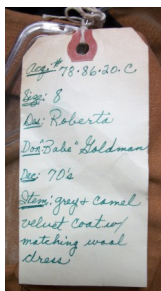 Acq.# 78.86.20.C
Size: 8
Des: Roberta
Don: "Babe" Goldman
Dec: 70's
Item: grey & camel
velvet coat w/
matching wool
dress